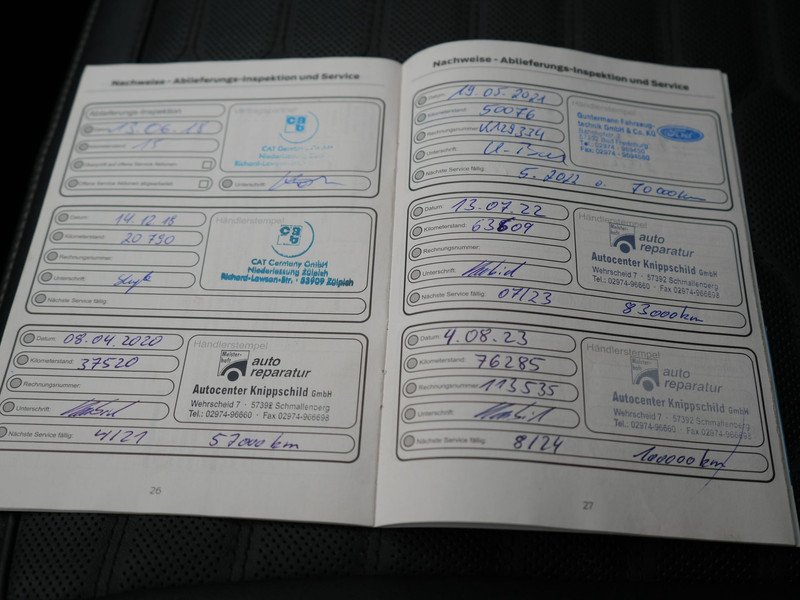 Nachweise - Ablieferungs-Inspektion und Service
Ablieferungs-Inspektion
13.06.18
15
Unterschrift:
CAT Germany GmbH
Niederlassung Zülpich
Datum: 14.12.18
Kilometerstand: 20 790
Rechnungsnummer:
Unterschrift:
Nächste Service fällig:
Händlerstempel
CAT Germany GmbH
Niederlassung Zülpich
Richard-Lawson-Str. · 53909 Zülpich
Datum: 08.04.2020
Kilometerstand: 37520
Rechnungsnummer:
Unterschrift:
Nächste Service fällig: 4/21 57000 km
Händlerstempel
Meister-
haft
auto
reparatur
Autocenter Knippschild GmbH
Wehrscheid 7 · 57392 Schmallenberg
Tel.: 02974-96660 · Fax 02974-966698
26
Nachweise - Ablieferungs-Inspektion und Service
Datum: 19.05.2021
Kilometerstand: 50076
Rechnungsnummer:
Unterschrift:
Nächste Service fällig: 5.2022 o. 70000km
Händlerstempel
Guntermann Fahrzeug-
technik GmbH & Co. KG
Ford
Datum: 13.07.22
Kilometerstand: 63609
Rechnungsnummer:
Unterschrift:
Nächste Service fällig: 07/23 83000km
Händlerstempel
Meister-
haft
auto
reparatur
Autocenter Knippschild GmbH
Wehrscheid 7 · 57392 Schmallenberg
Tel.: 02974-96660 · Fax 02974-966698
Datum: 4.08.23
Kilometerstand: 76285
Rechnungsnummer: 113535
Unterschrift:
Nächste Service fällig: 8/24 100000 km
Händlerstempel
Meister-
haft
auto
reparatur
Autocenter Knippschild GmbH
Wehrscheid 7 · 57392 Schmallenberg
Tel.: 02974-96660 · Fax 02974-966698
27